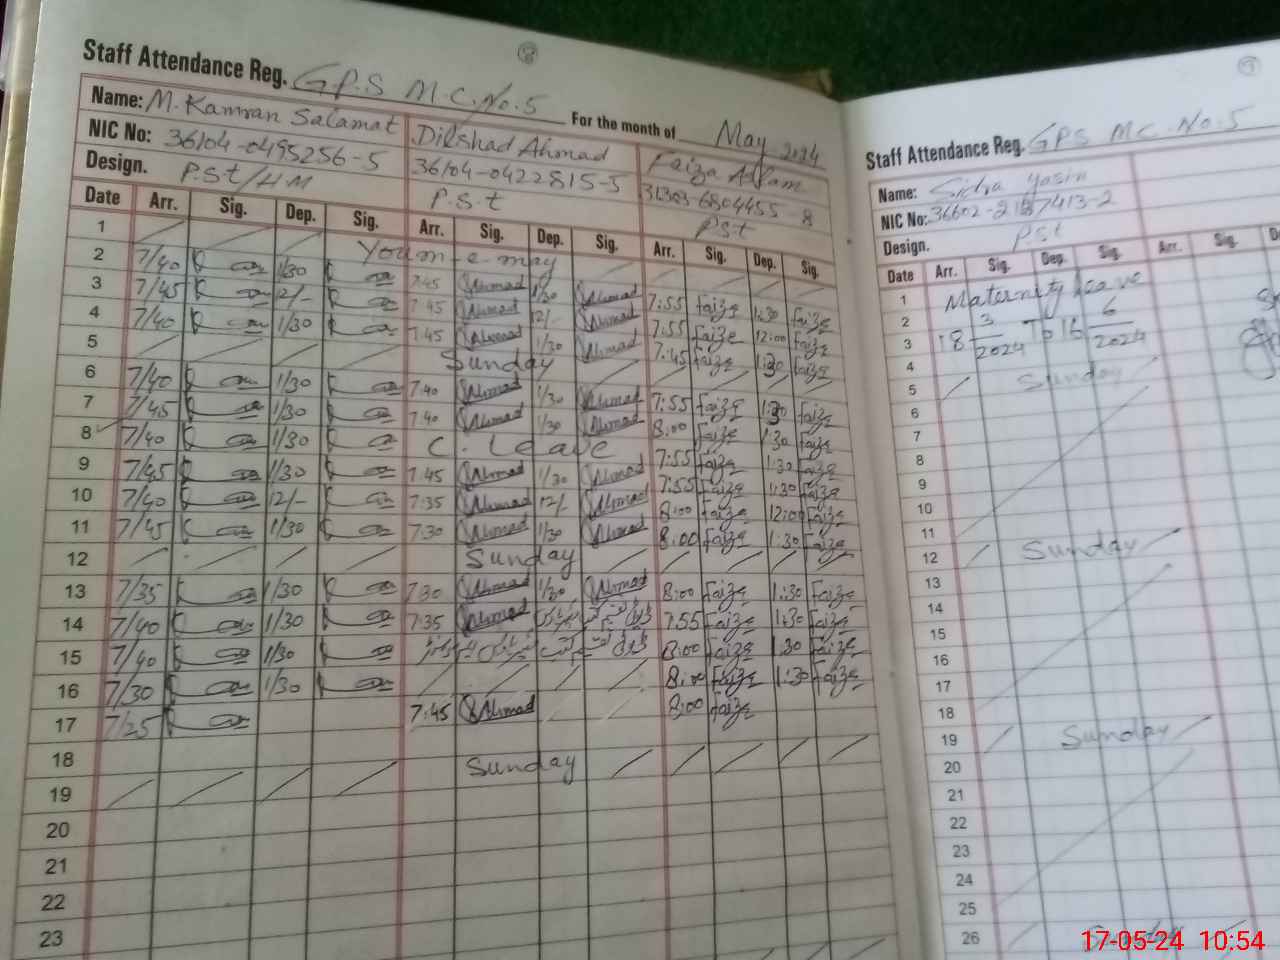 8
Staff Attendance Reg. GPS M.C. No. 5 For the month of May 2024
Name: M. Kamran Salamat Dilshad Ahmad Faiza Aslam
NIC No: 36104-0495256-5 36104-0422815-5 31303-6804455-8
Design. P.S.t/HM P.S.t P.S.t
Date Arr. Sig. Dep. Sig. Arr. Sig. Dep. Sig. Arr. Sig. Dep. Sig.
1 / / / /
2 7/40 1/30 7:45 Ahmad 1/30 Ahmad 7:55 faize 1:30 faize
3 7/45 12/- 7:45 Ahmad 12/- Ahmad 7:55 faize 12:00 faize
4 7/40 1/30 7:45 Ahmad 1/30 Ahmad 7:45 faize 1:30 faize
5 / / / / Sunday / / / / /
6 7/40 1/30 7:40 Ahmad 1/30 Ahmad 7:55 faize 1:30 faize
7 7/45 1/30 7:40 Ahmad 1/30 Ahmad 8:00 faize 1:30 faize
8 7/40 1/30 C. Leave 7:55 faize 1:30 faize
9 7/45 1/30 7:45 Ahmad 1/30 Ahmad 7:55 faize 1:30 faize
10 7/40 12/- 7:35 Ahmad 12/- Ahmad 8:00 faize 12:00 faize
11 7/45 1/30 7:30 Ahmad 1/30 Ahmad 8:00 faize 1:30 faize
12 / / / / Sunday / / / / /
13 7/35 1/30 7:30 Ahmad 1/30 Ahmad 8:00 faize 1:30 faize
14 7/40 1/30 7:35 Ahmad 7:55 faize 1:30 faize
15 7/40 1/30 8:00 faize 1:30 faize
16 7/30 1/30 / / / / 8:00 faize 1:30 faize
17 7/25 7:45 Ahmad 8:00 faize
18
19 / / / / Sunday / / / / /
20
21
22
23
9
Staff Attendance Reg. GPS MC. No. 5
Name: Sidra Yasin
NIC No:
Design. P.S.t
Date Arr. Sig. Dep. Sig. Arr. Sig.
1 Maternity leave
2 18 3/2024 To 16 6/2024
3
4
5 / Sunday /
6
7
8
9
10
11
12 / Sunday /
13
14
15
16
17
18
19 / Sunday /
20
21
22
23
24
25
26 / Sunday /
17-05-24 10:54